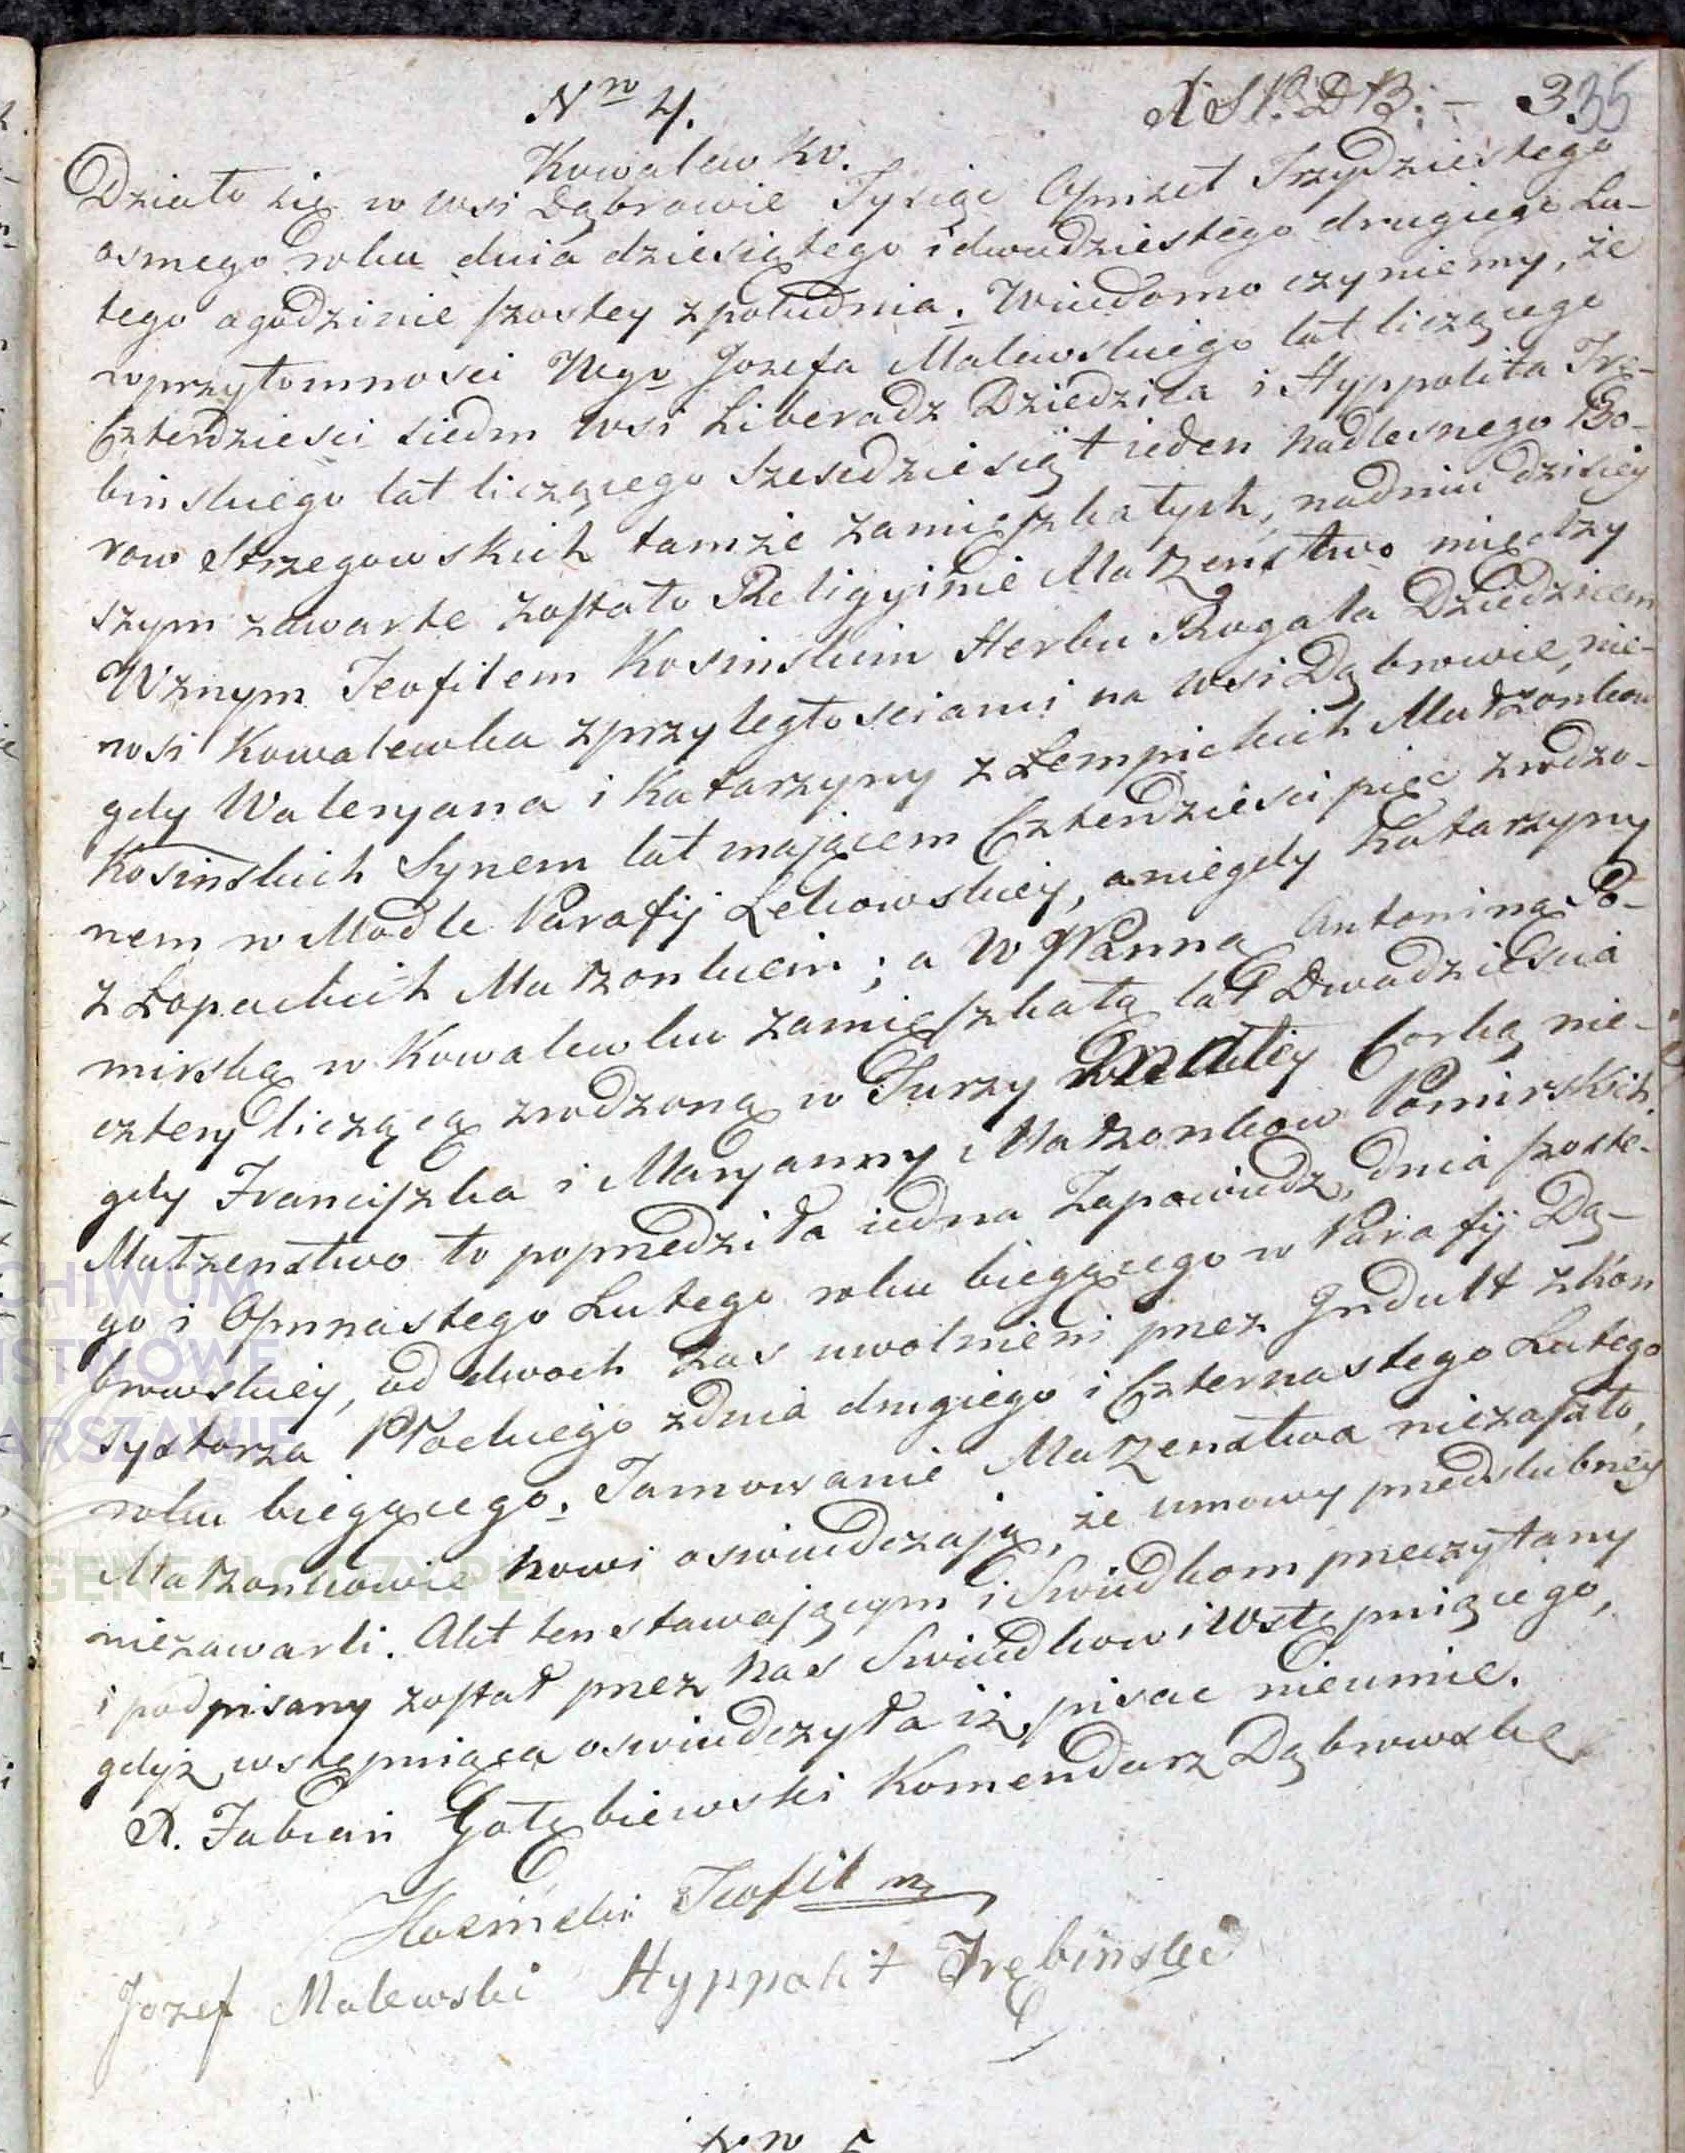 Nro 4.
3.35
Kowalewko.
Działo się w wsi Dąbrowie Tysiąc Ośmset Trzydziestego
osmego roku dnia dziesiątego i dwudziestego drugiego Lu-
tego o godzinie szostey z południa. Wiadomo czyniemy, że
w przytomnosci Wgo Jozefa Malewskiego lat liczącego
Czterdziesci siedm wsi Liberadz Dziedzica i Hyppolita Trę-
binskiego lat liczącego Szescdziesiąt ieden Nadlesnego Bo-
row Strzegowskich tamże zamięszkałych, na dniu dzisiey
szym zawarte zostało Religyine Małżenstwo między
Wznym Teofilem Kosinskim Herbu Rogala Dziedzicem
wsi Kowalewka z przyległosciami na wsi Dąbrowie, nie-
gdy Waleryana i Katarzyny z Łempickich Małżonkow
Kosinskich Synem lat maiącem Czterdziesci pięc zrodzo-
nem w Modle Parafij Lekowskiey, a niegdy Katarzyny
z Łopackich Małzonkiem; a W Panną Antoniną Po-
mirską w Kowalewku zamięszkałą lat Dwadziescia
cztery liczącą zrodzoną w Turzy Corką nie-
gdy Franciszka i Maryanny Małzonkow Pomirskich.
Małzenstwo to poprzedziła iedna Zapowiedz, dnia szoste-
go i Osmnastego Lutego roku biegącego w Parafij Dą-
browskiey, od dwoch zas uwolnieni przez Indult z Kon
systorza Płockiego z dnia drugiego i Czternastego Lutego
roku biegącego. Tamowanie Małzenstwa niezaszło,
Małzonkowie Nowi oswiadczaią, że umowy przedslubney
niezawarli. Akt ten stawaiącym i Swiadkom przeczytany
i podpisany został przez Nas Swiadkow i Wstępuiącego,
gdyż wstępuiąca oswiadczyła iż pisac nieumie.
X. Fabian Gołębiewski Komendarz Dąbrowski
Kosinski Teofil
Jozef Malewski Hyppolit Trębinski
Nro 5
ARCHIWUM
PAŃSTWOWE
W WARSZAWIE
GENEALODZY.PL